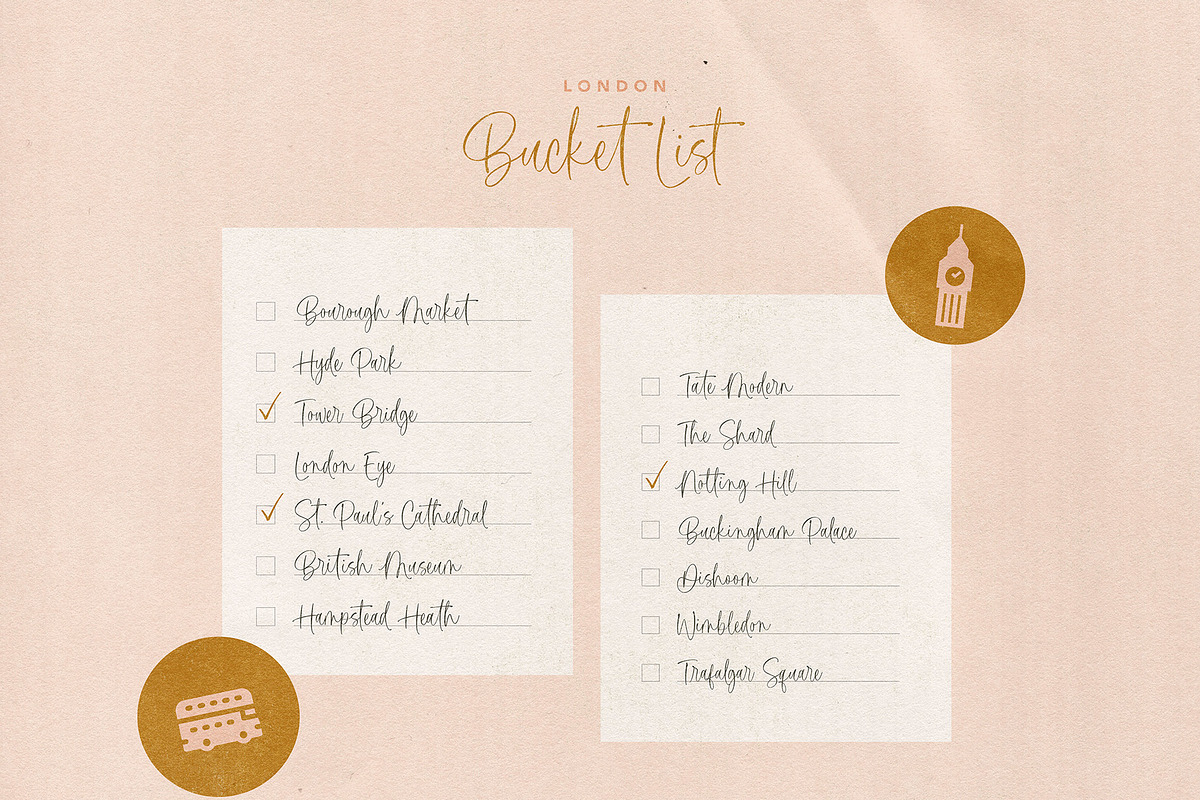 LONDON
Bucket List
Bourough Market
Hyde Park
Tower Bridge
London Eye
St. Paul's Cathedral
British Museum
Hampstead Heath
Tate Modern
The Shard
Notting Hill
Buckingham Palace
Dishoom
Wimbledon
Trafalgar Square